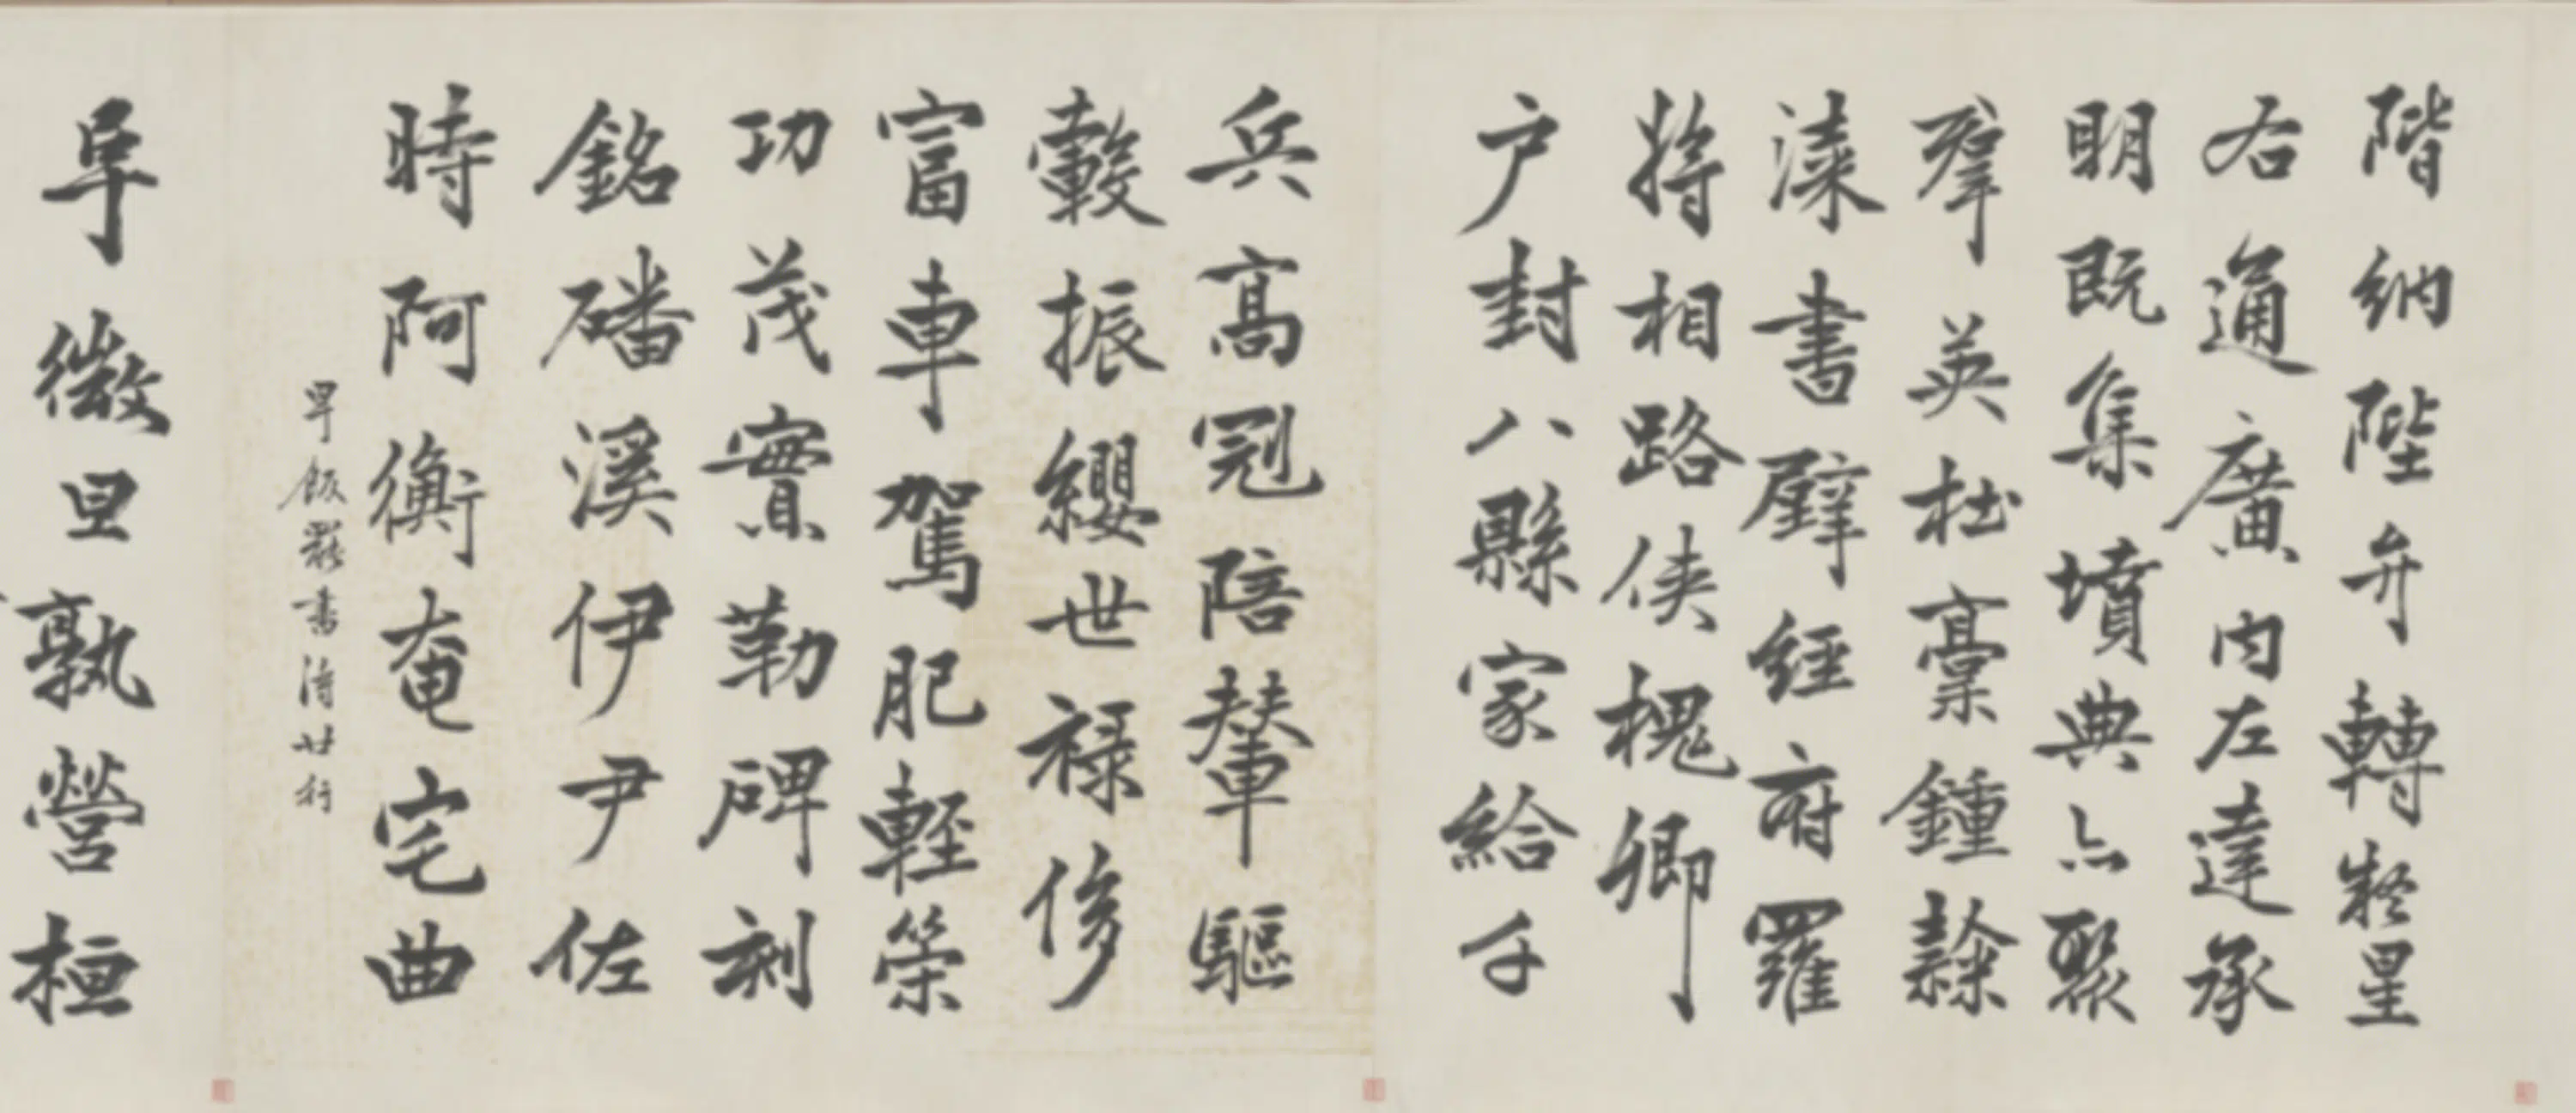 階納陛弁轉疑星
右通廣內左達承
明既集墳典亦聚
群英杜稾鍾隸
漆書壁經府羅
將相路俠槐卿
户封八縣家給千
兵高冠陪輦驅
轂振纓世祿侈
富車駕肥輕策
功茂實勒碑刻
銘磻溪伊尹佐
時阿衡奄宅曲
早飯罷書得廿行
阜微旦孰營桓